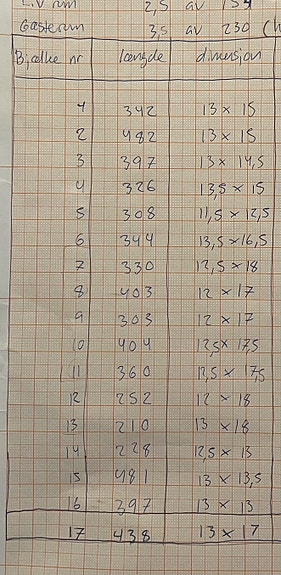 2,5 av
Gästerum 3,5 av 230
Bjælke nr længde dimension
1 342 13 x 15
2 482 13 x 15
3 397 13 x 14,5
4 326 13,5 x 15
5 308 11,5 x 12,5
6 344 13,5 x 16,5
7 330 12,5 x 18
8 403 12 x 17
9 303 12 x 17
10 404 12,5 x 17,5
11 360 12,5 x 17,5
12 252 12 x 18
13 210 13 x 18
14 228 12,5 x 13
15 481 13 x 13,5
16 397 13 x 13
17 438 13 x 17